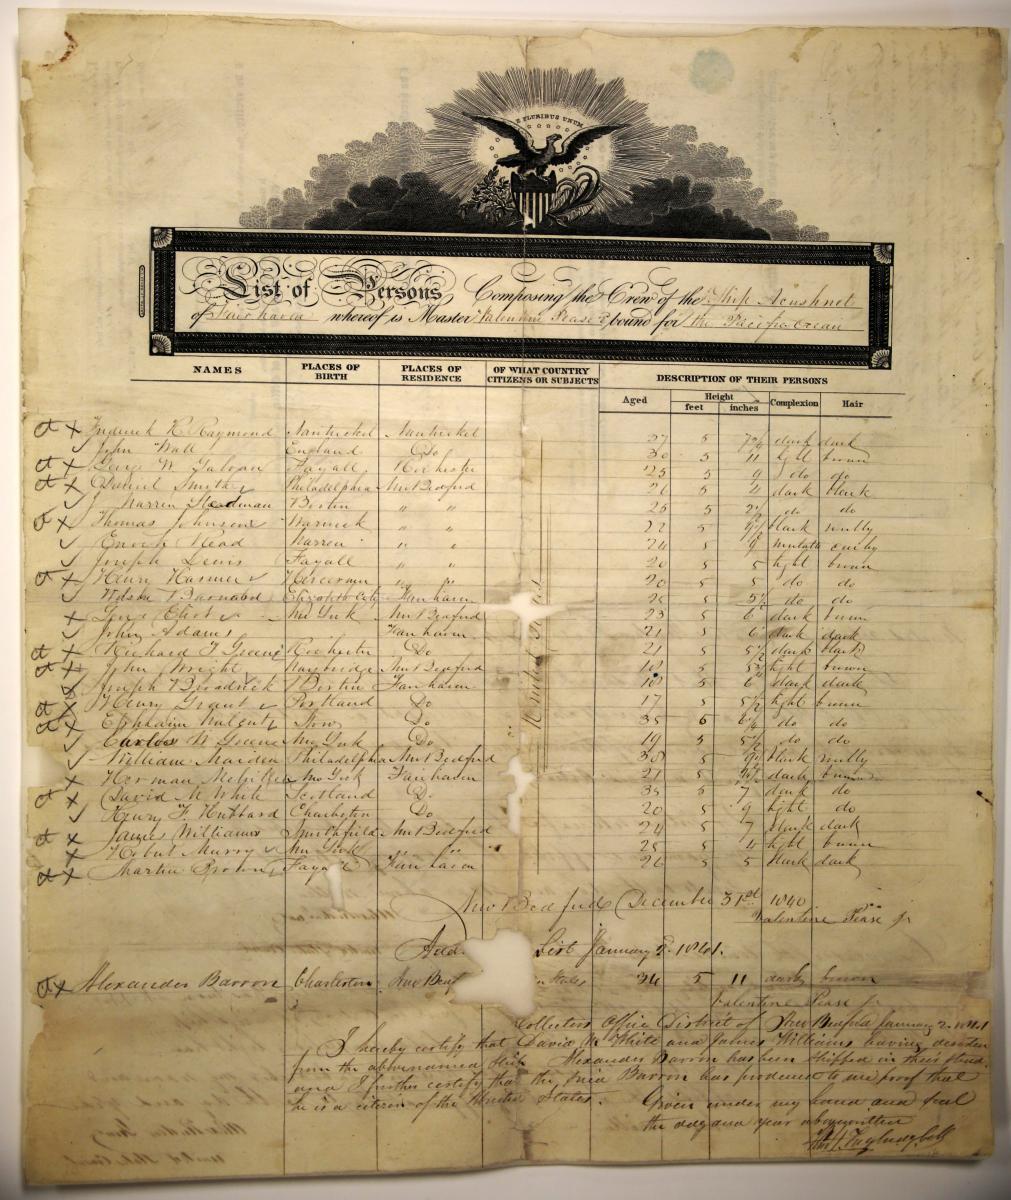 E PLURIBUS UNUM
List of Persons Composing the Crew of the Ship Acushnet
of Fairhaven whereof is Master Valentine Pease Jr bound for the Pacific Ocean
NAMES PLACES OF BIRTH PLACES OF RESIDENCE OF WHAT COUNTRY CITIZENS OR SUBJECTS DESCRIPTION OF THEIR PERSONS
Aged Height feet inches Complexion Hair
Frederick R Raymond Nantucket Nantucket 27 5 dark dark
John Wall England Do 30 5 11 light brown
George W Galvan Fayall Rochester 25 5 9 do do
Daniel Smith Philadelphia New Bedford 26 5 4 dark black
J Warren Stedman Boston " " 25 5 do do
Thomas Johnson Warwick " " 22 5 black woolly
Enoch Read Warren " " 24 5 9 mulatto curly
Joseph Lewis Fayall " " 20 5 5 light brown
Henry Harmer " " 20 5 5 do do
Wilson Barnard Elizabeth City Fairhaven 5 5½ do do
George Eliot New York New Bedford 23 5 6 dark brown
John Adams Fairhaven 21 5 6 dark dark
Richard T Greene Rochester Do 21 5 5½ dark black
John Wright New Bedford 18 5 light brown
Joseph Broadrick Boston Fairhaven 5 6 dark dark
Henry Grant Portland Do 17 5 5½ light brown
Ephraim Walcutt Stow Do 35 6 do do
Carlos W Greene New York Do 19 5 5½ do do
William Maiden Philadelphia New Bedford 38 5 black woolly
Herman Melville New York Fairhaven 21 5 dark brown
David M White Scotland Do 35 5 7 dark do
Henry F Hubbard Charleston Do 20 5 9 light do
James Williams Smithfield New Bedford 24 5 7 black dark
Robert Murry New York " 25 5 4 light brown
Martin Brown Fayal Fairhaven 26 5 5 black dark
United States
New Bedford December 31st 1840
Valentine Pease Jr
List January 2. 1841.
Alexander Barron Charleston New States 34 5 11 dark brown
Valentine Pease Jr
Collectors Office District of New Bedford January 2. 1841
I hereby certify that David M White and James Williams having deserted
from the abovenamed Ship Alexander Barron has been shipped in their stead
and I further certify that the said Barron has produced to me proof that
he is a citizen of the United States. Given under my hand and seal
the day and year abovewritten